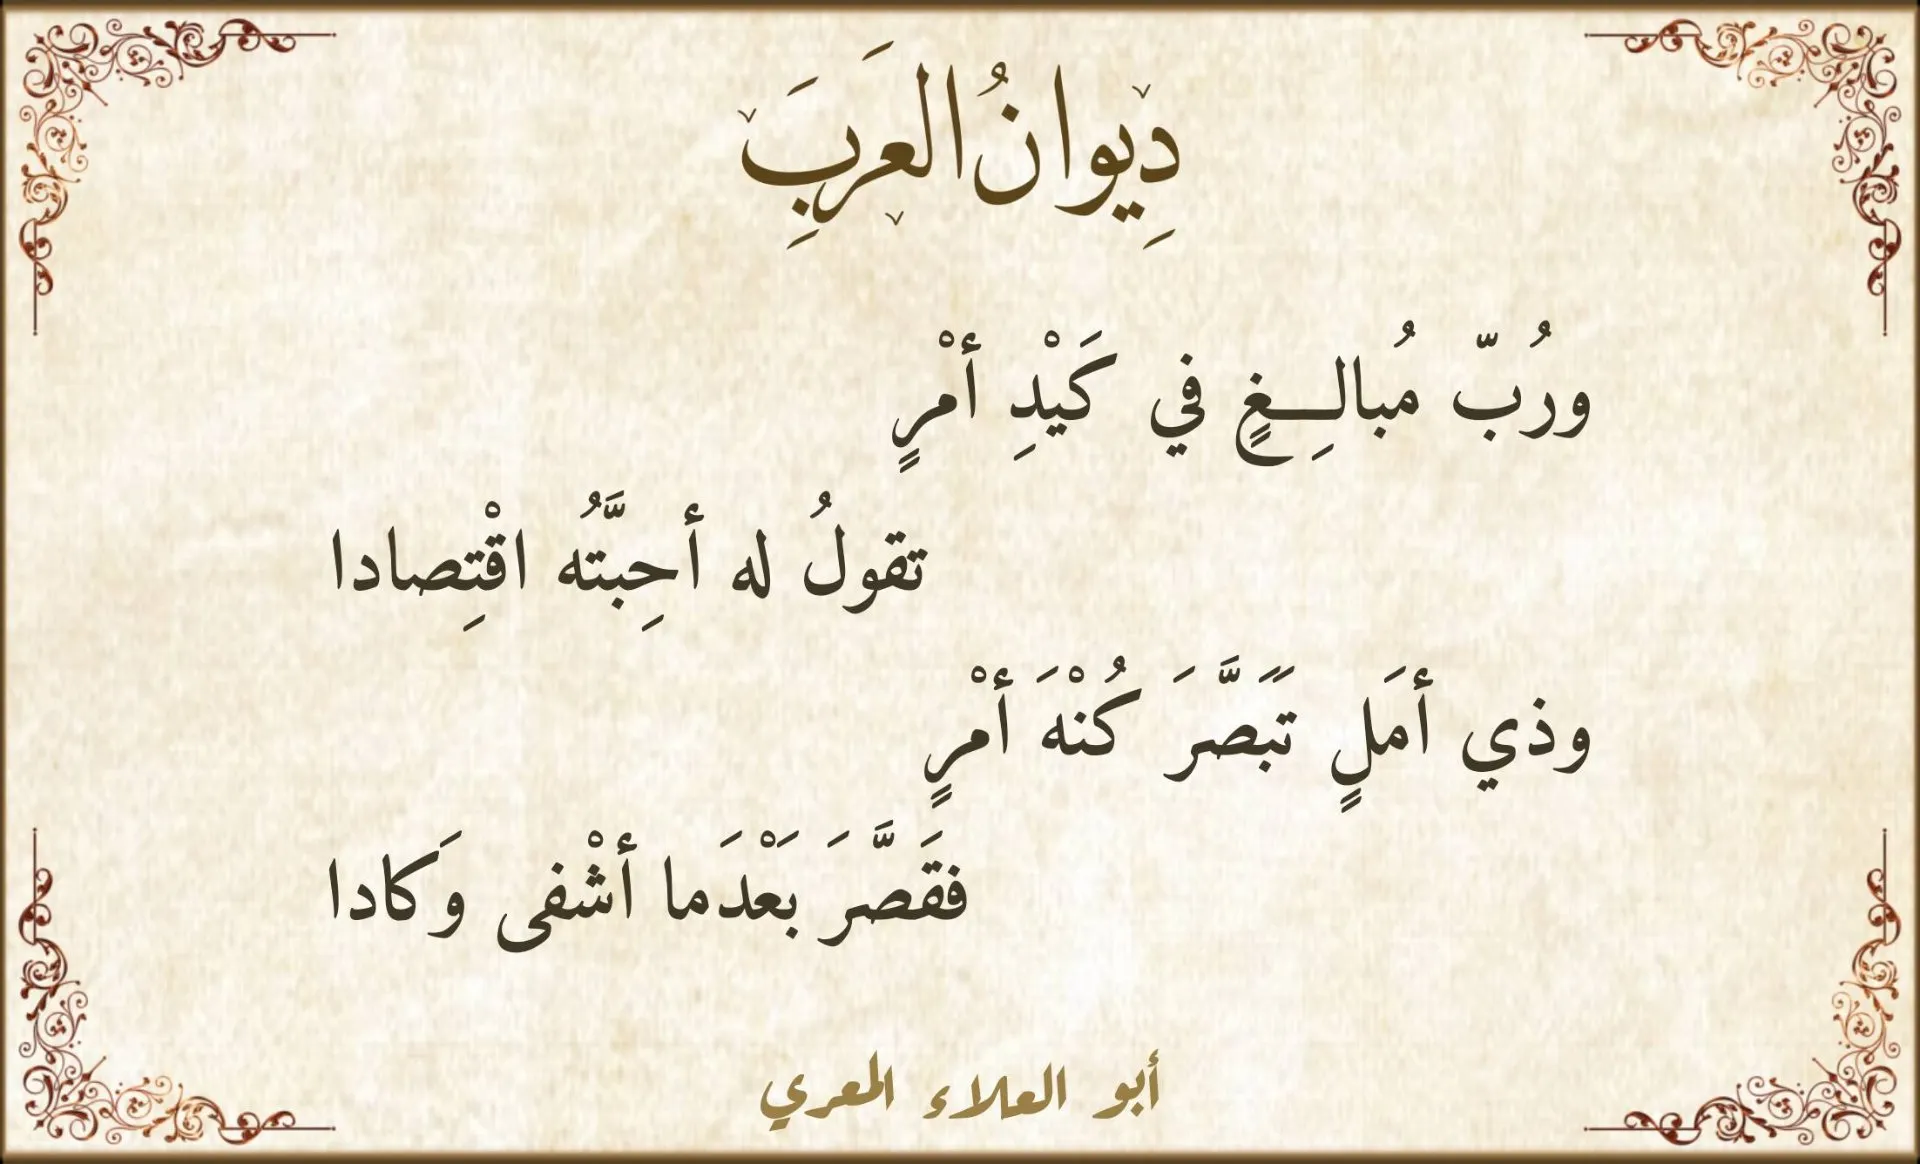 دِيوانُ العَرَبِ
ورُبّ مُبالِـــغٍ في كَيْدِ أمْرٍ
تقولُ له أحِبَّتُه اقْتِصادا
وذي أمَلٍ تَبَصَّرَ كُنْهَ أمْرٍ
فقَصَّرَ بَعْدَما أشْفى وَكادا
أبو العلاء المعري